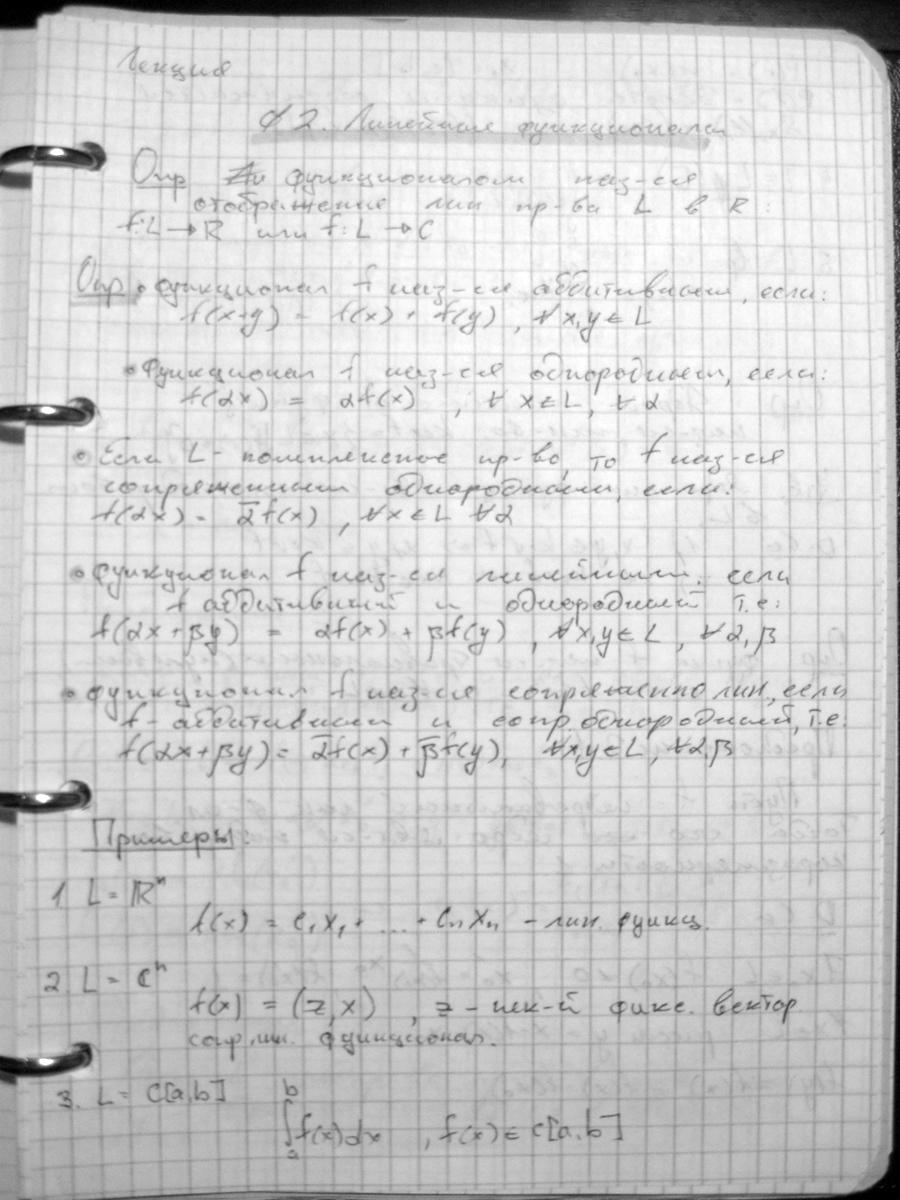 Лекция
§2. Линейные функционалы
Опр функционалом наз-ся
отображение лин пр-ва L в R:
f: L → R или f: L → C
Опр • Функционал f наз-ся аддитивным, если:
f(x+y) = f(x) + f(y), ∀x,y ∈ L
• Функционал f наз-ся однородным, если:
f(αx) = αf(x), ∀ x ∈ L, ∀ α
• Если L - комплексное пр-во, то f наз-ся
сопряженным однородным, если:
f(αx) = ᾱf(x), ∀x ∈ L ∀α
• Функционал f наз-ся линейным, если
f аддитивный и однородный т.е:
f(αx + βy) = αf(x) + βf(y), ∀x,y ∈ L, ∀α,β
• функционал f наз-ся сопряженно лин., если
f - аддитивный и сопр. однородный, т.е:
f(αx + βy) = ᾱf(x) + β̄f(y), ∀x,y ∈ L, ∀α,β
Примеры:
1. L = ℝⁿ
f(x) = c₁x₁ + ... + cₙxₙ - лин. функц.
2. L = ℂⁿ
f(x) = (z,x), z - нек-й фикс. вектор
сопр. лин. функционал.
3. L = C[a,b]
∫ₐᵇ f(x)dx, f(x) ∈ C[a,b]